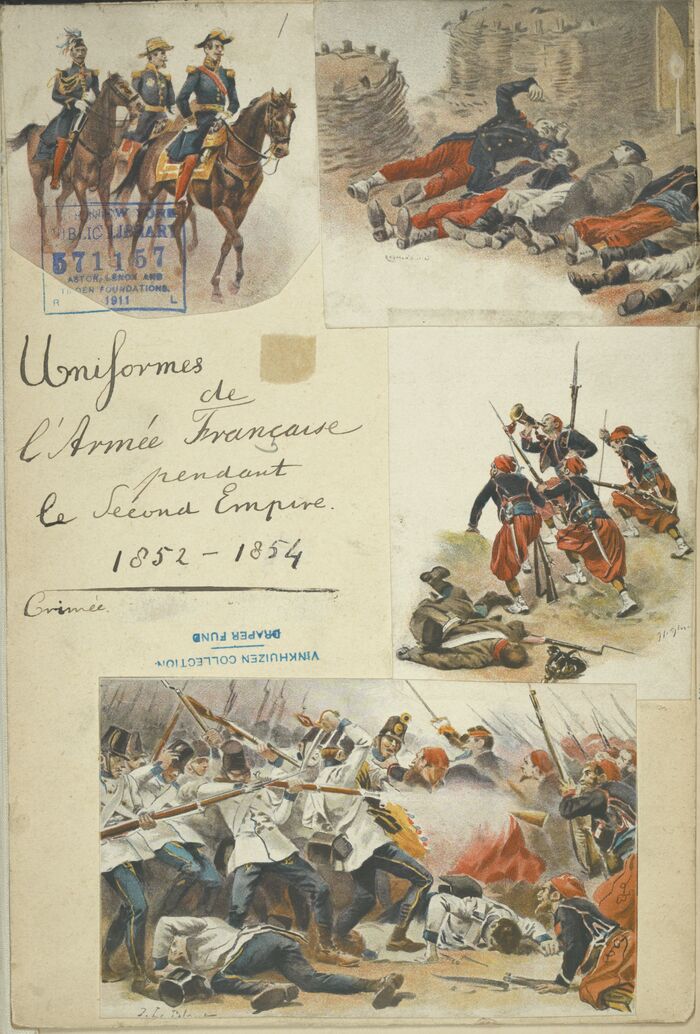 1
NEW YORK
PUBLIC LIBRARY
571157
ASTOR, LENOX AND
TILDEN FOUNDATIONS.
R 1911 L
Uniformes
de
l'Armée Française
pendant
le Second Empire.
1852 - 1854
Crimée.
VINKHUIZEN COLLECTION
DRAPER FUND